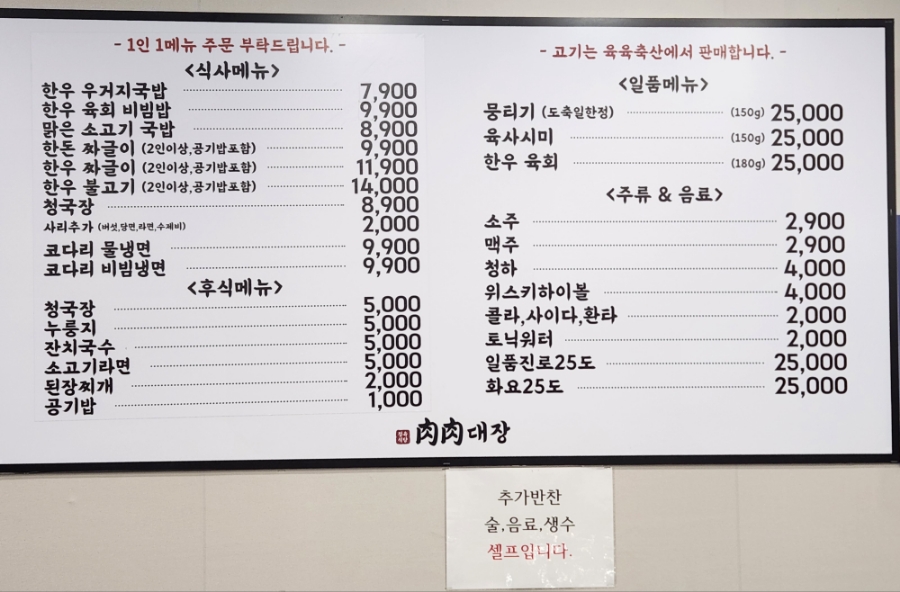 - 1인 1메뉴 주문 부탁드립니다. -
<식사메뉴>
한우 우거지국밥 7,900
한우 육회 비빔밥 9,900
맑은 소고기 국밥 8,900
한돈 짜글이 (2인이상,공기밥포함) 9,900
한우 짜글이 (2인이상,공기밥포함) 11,900
한우 불고기 (2인이상,공기밥포함) 14,000
청국장 8,900
사리추가 (버섯,당면,라면,수제비) 2,000
코다리 물냉면 9,900
코다리 비빔냉면 9,900
<후식메뉴>
청국장 5,000
누룽지 5,000
잔치국수 5,000
소고기라면 5,000
된장찌개 2,000
공기밥 1,000
- 고기는 육육축산에서 판매합니다. -
<일품메뉴>
뭉티기 (도축일한정) (150g) 25,000
육사시미 (150g) 25,000
한우 육회 (180g) 25,000
<주류 & 음료>
소주 2,900
맥주 2,900
청하 4,000
위스키하이볼 4,000
콜라,사이다,환타 2,000
토닉워터 2,000
일품진로25도 25,000
화요25도 25,000
肉肉대장
추가반찬
술,음료,생수
셀프입니다.